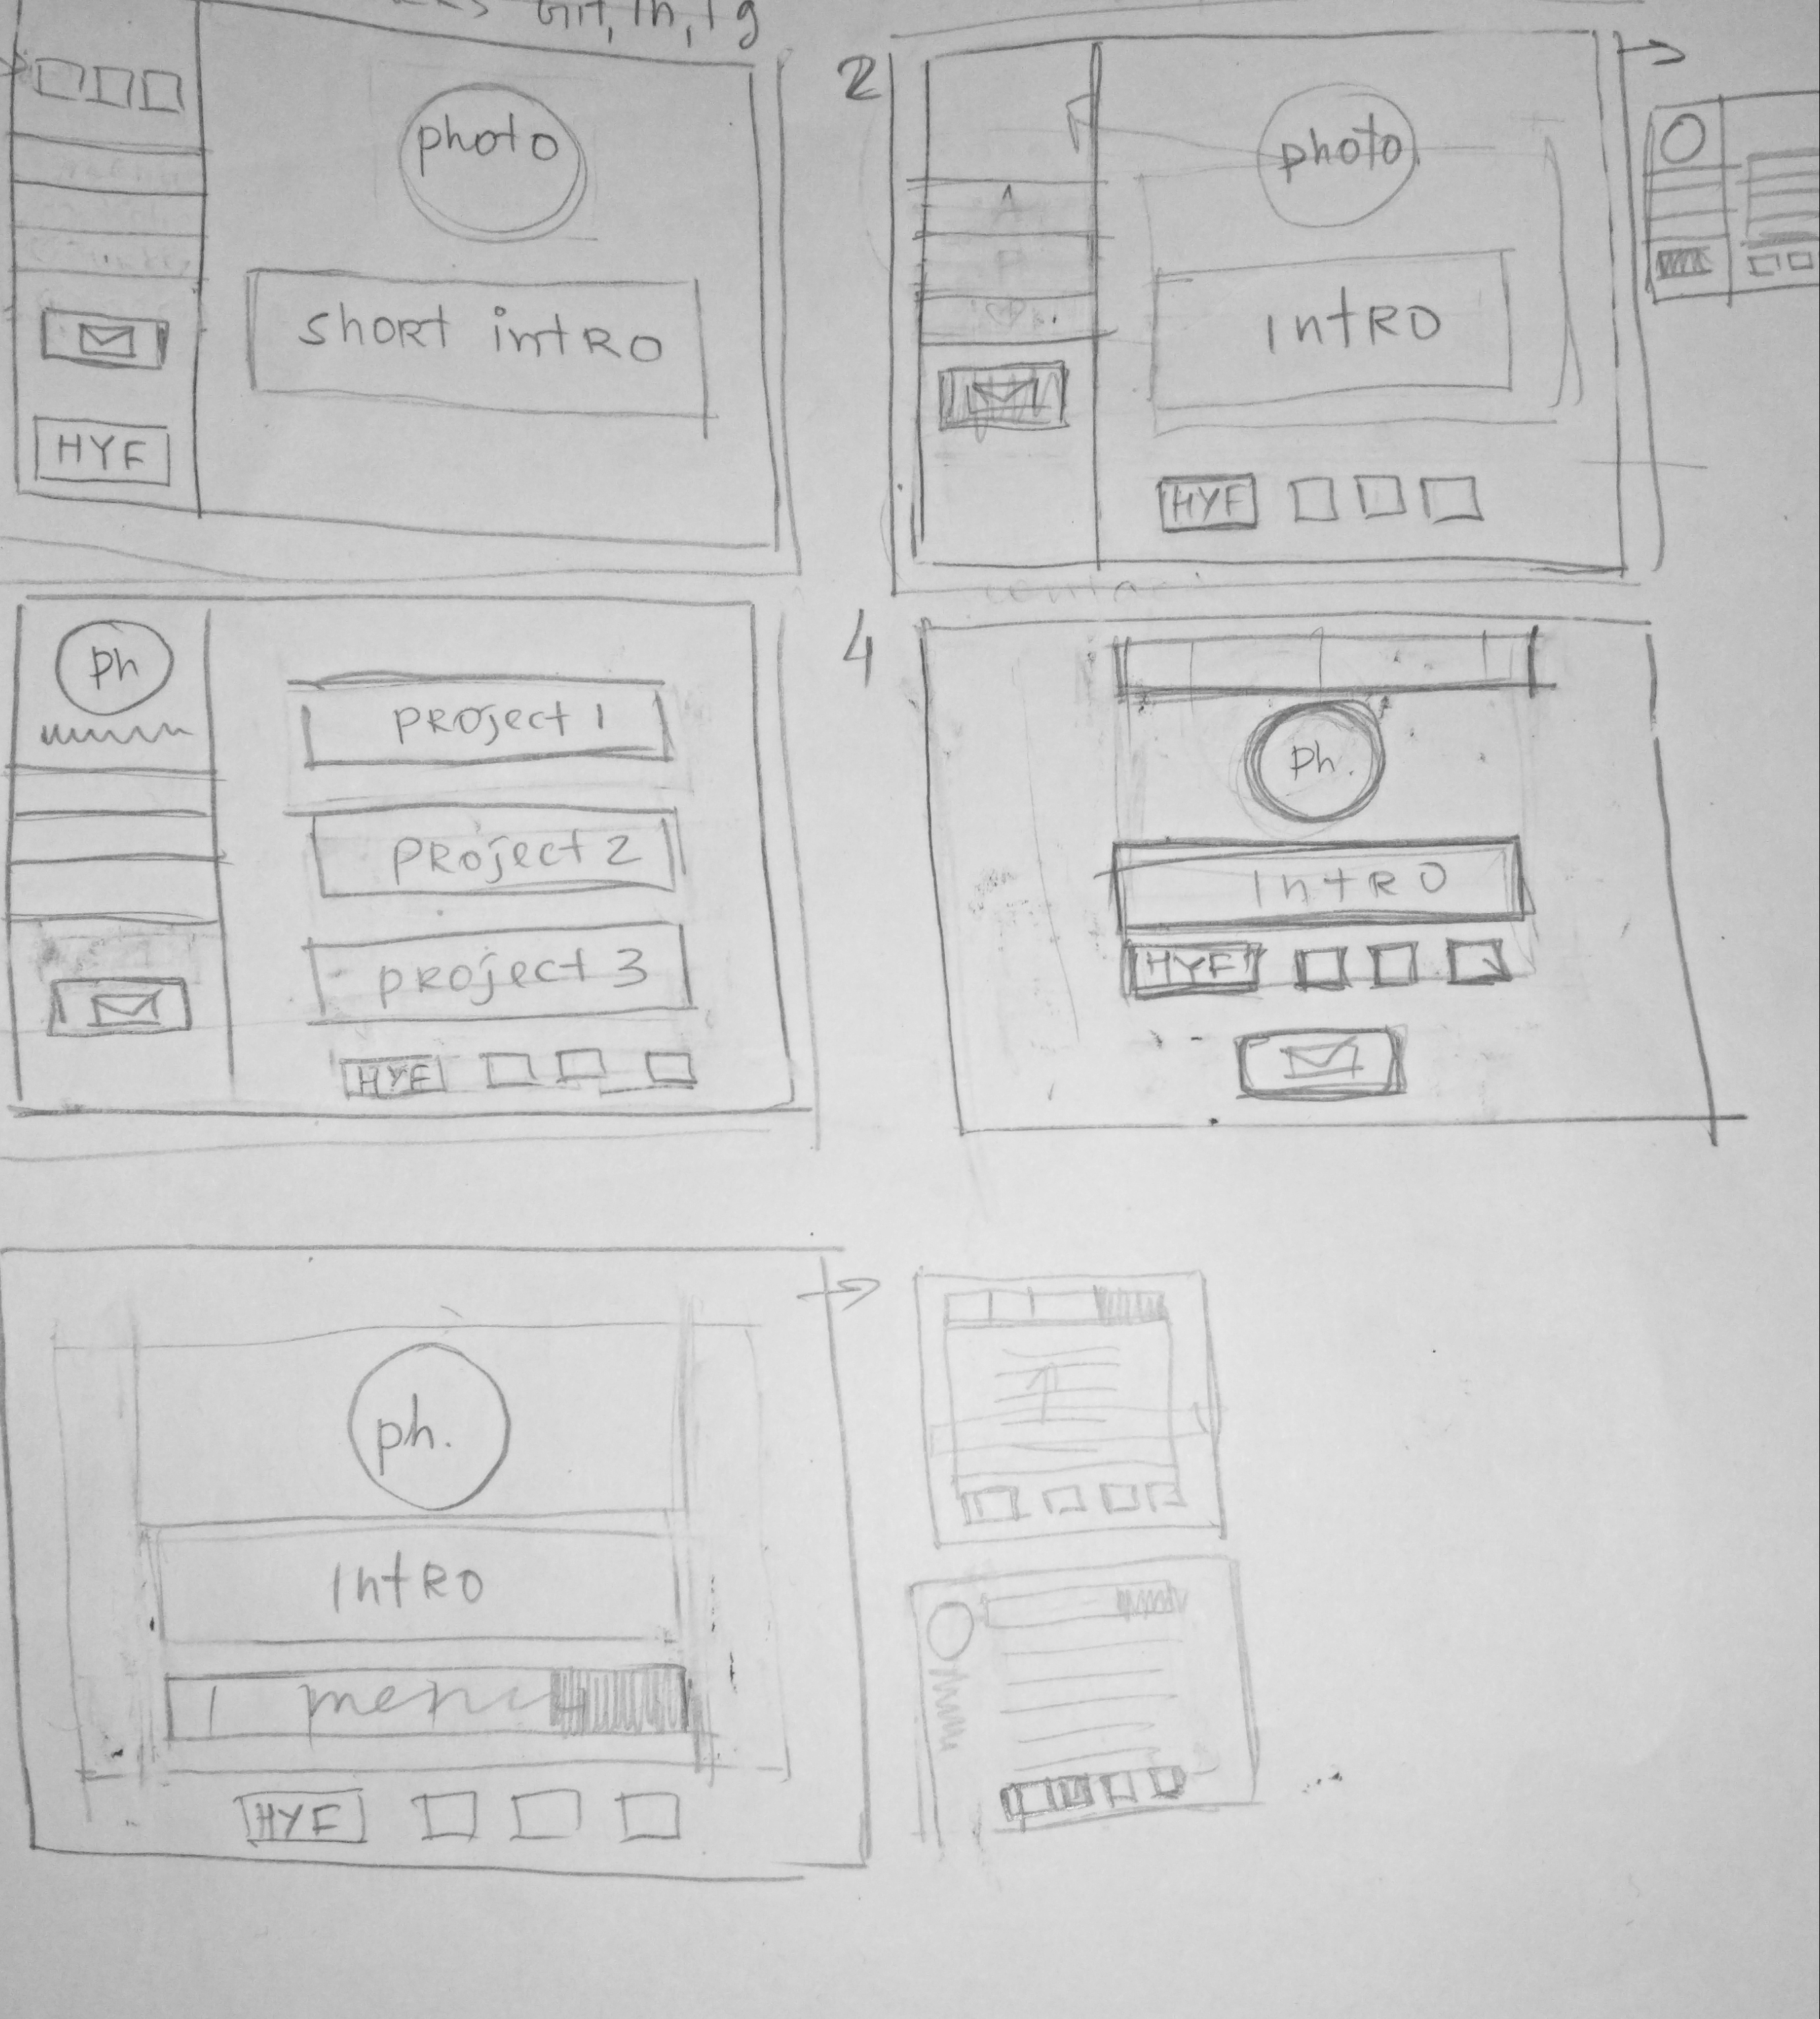 Git, in, fg
photo
short intro
HYF
2
photo
A
P
intro
HYF
ph
project 1
project 2
project 3
HYF
4
ph.
intro
HYF
ph.
intro
menu
HYF